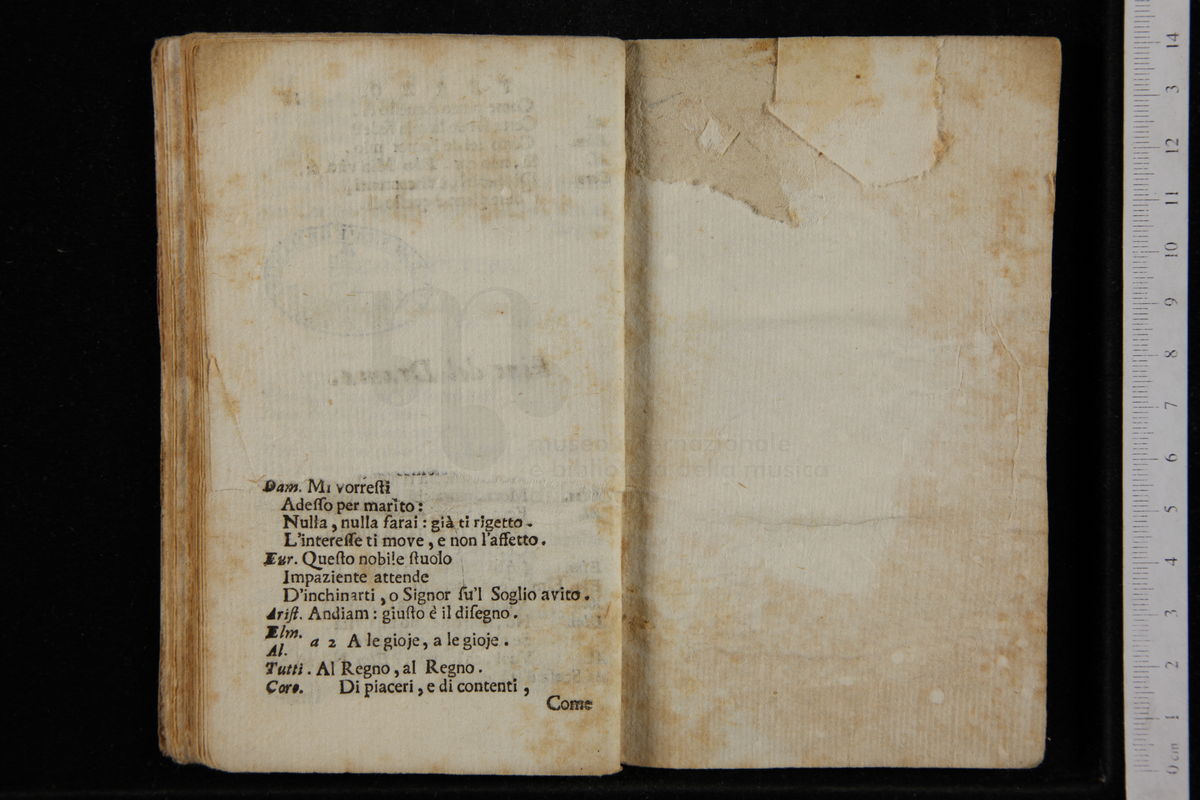 Dam. Mi vorreſti
Adeſſo per marito:
Nulla, nulla farai: già ti rigetto.
L'intereſſe ti move, e non l'affetto.
Eur. Queſto nobile ſtuolo
Impaziente attende
D'inchinarti, o Signor ſu'l Soglio avito.
Ariſt. Andiam: giuſto è il diſegno.
Elm.
a 2 A le gioje, a le gioje.
Al.
Tutti. Al Regno, al Regno.
Coro. Di piaceri, e di contenti,
Come
museo internazionale
e biblioteca della musica
14
3
12
11
10
9
8
7
6
5
4
3
2
1
0 cm